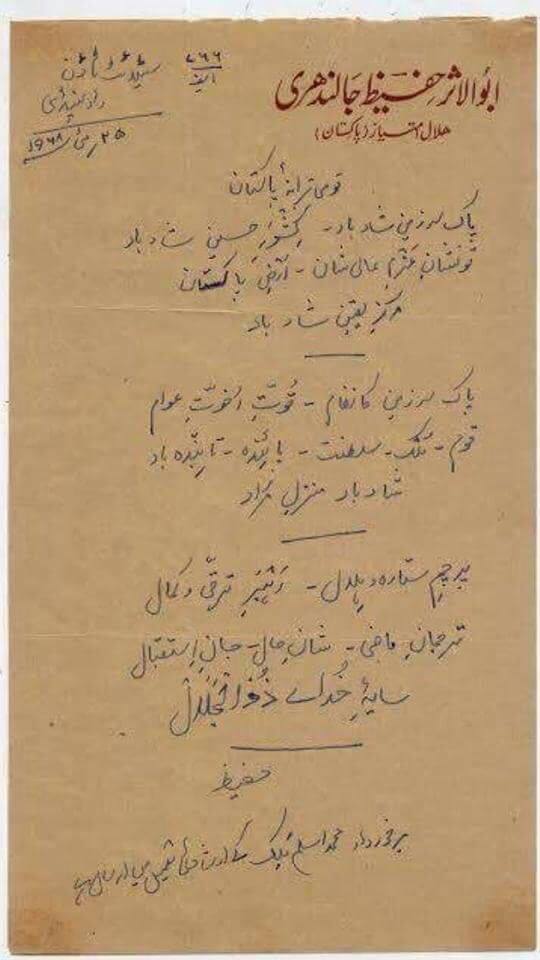 ابوالاثر حفیظ جالندھری
ہلال امتیاز (پاکستان)
۷۸۶
سیٹلائٹ ٹاؤن
راولپنڈی
۲۵ مئی ۱۹۶۸
قومی ترانۂ پاکستان
پاک سرزمین شاد باد - کِشوَرِ حسین شاد باد
تُو نشانِ عَزمِ عالی شان - ارضِ پاکستان
مرکزِ یقین شاد باد
پاک سرزمین کا نظام - قُوّتِ اُخوّتِ عوام
قوم - مُلک - سلطنت - پائندہ - تابندہ باد
شاد باد منزلِ مُراد
پرچمِ ستارہ و ہلال - رَہبرِ ترقّی و کمال
ترجمانِ ماضی - شانِ حال - جانِ اِستقبال
سایۂ خُدائے ذُوالجَلال
حفیظ
برخوردار محمد اسلم ملک کے ارشاد کی تعمیل میں